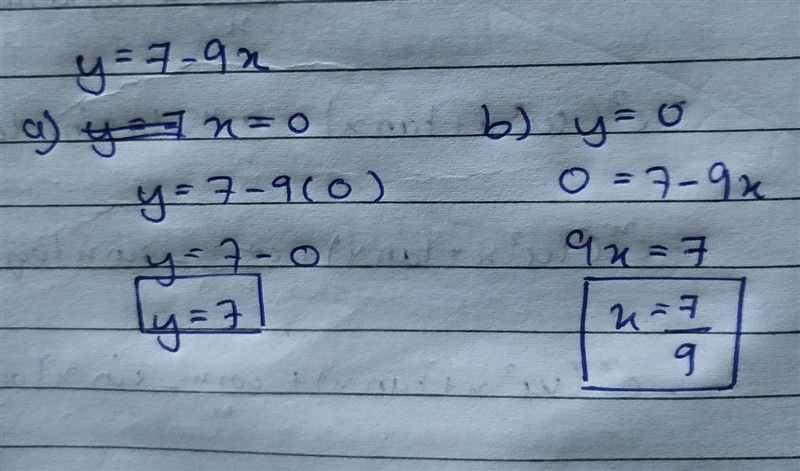 y = 7 - 9x
a) y = 7 x = 0
y = 7 - 9(0)
y = 7 - 0
y = 7
b) y = 0
0 = 7 - 9x
9x = 7
x = 7/9